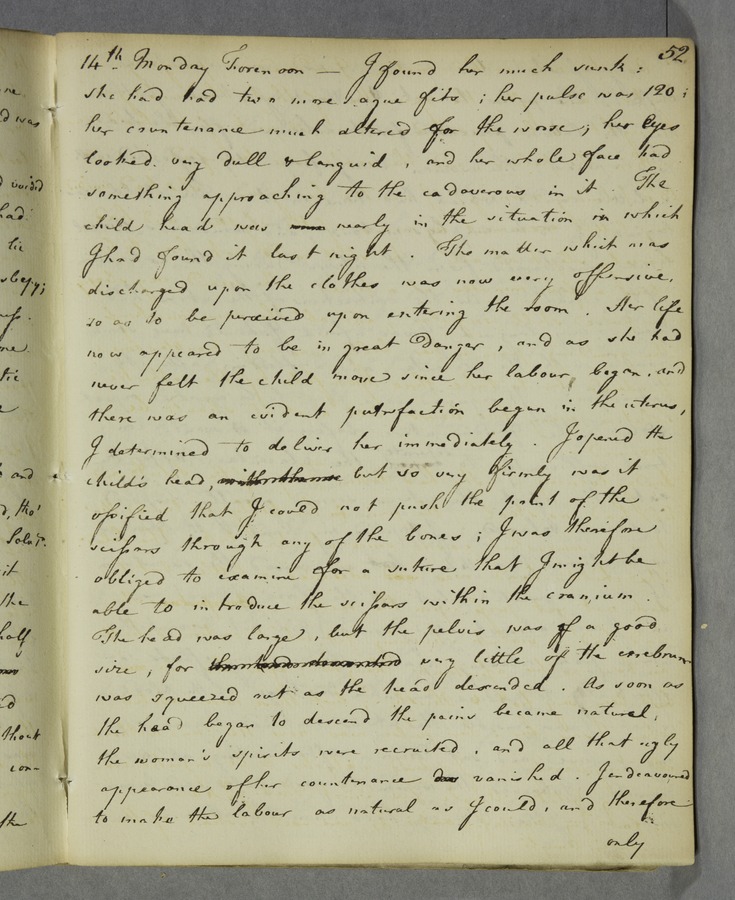 52
14th. Monday Forenoon — I found her much sunk:
she had had two more ague fits; her pulse was 120:
her countenance much altered for the worse; her eyes
looked very dull & languid, and her whole face had
something approaching to the cadaverous in it. The
child head was nearly in the situation in which
I had found it last night. The matter which was
discharged upon the clothes was now very offensive,
so as to be perceived upon entering the room. Her life
now appeared to be in great Danger, and as she had
never felt the child move since her labour began, and
there was an evident putrefaction begun in the uterus,
I determined to deliver her immediately. I opened the
child's head, but so very firmly was it
ossified that I could not push the point of the
scissars through any of the bones; I was therefore
obliged to examine for a suture that I might be
able to introduce the scissars within the cranium.
The head was large, but the pelvis was of a good
size, for very little of the cerebrum
was squeezed out as the head descended. As soon as
the head began to descend the pains became natural,
the woman's spirits were recruited, and all that ugly
appearance of her countenance vanished. I endeavoured
to make the labour as natural as I could, and therefore
only
ne
d was
d voided
had
lie
ness.
me
tic
e
and
d, tho'
it
the
half
d
thout
con-
the